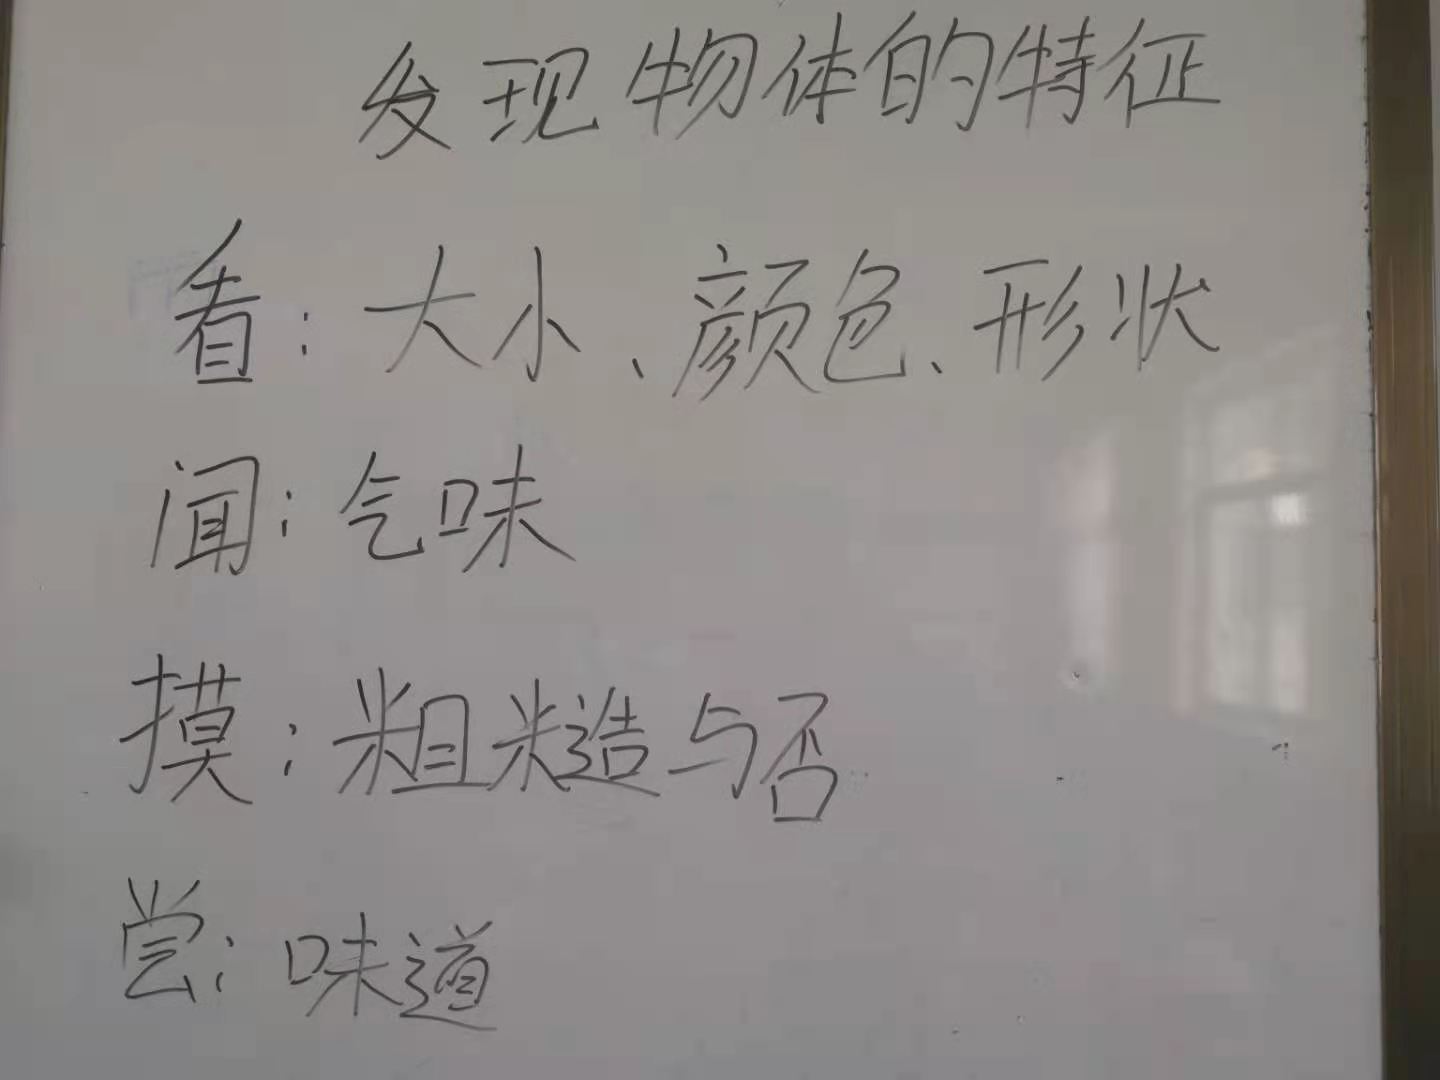 发现物体的特征
看：大小、颜色、形状
闻：气味
摸：粗糙与否
尝：味道